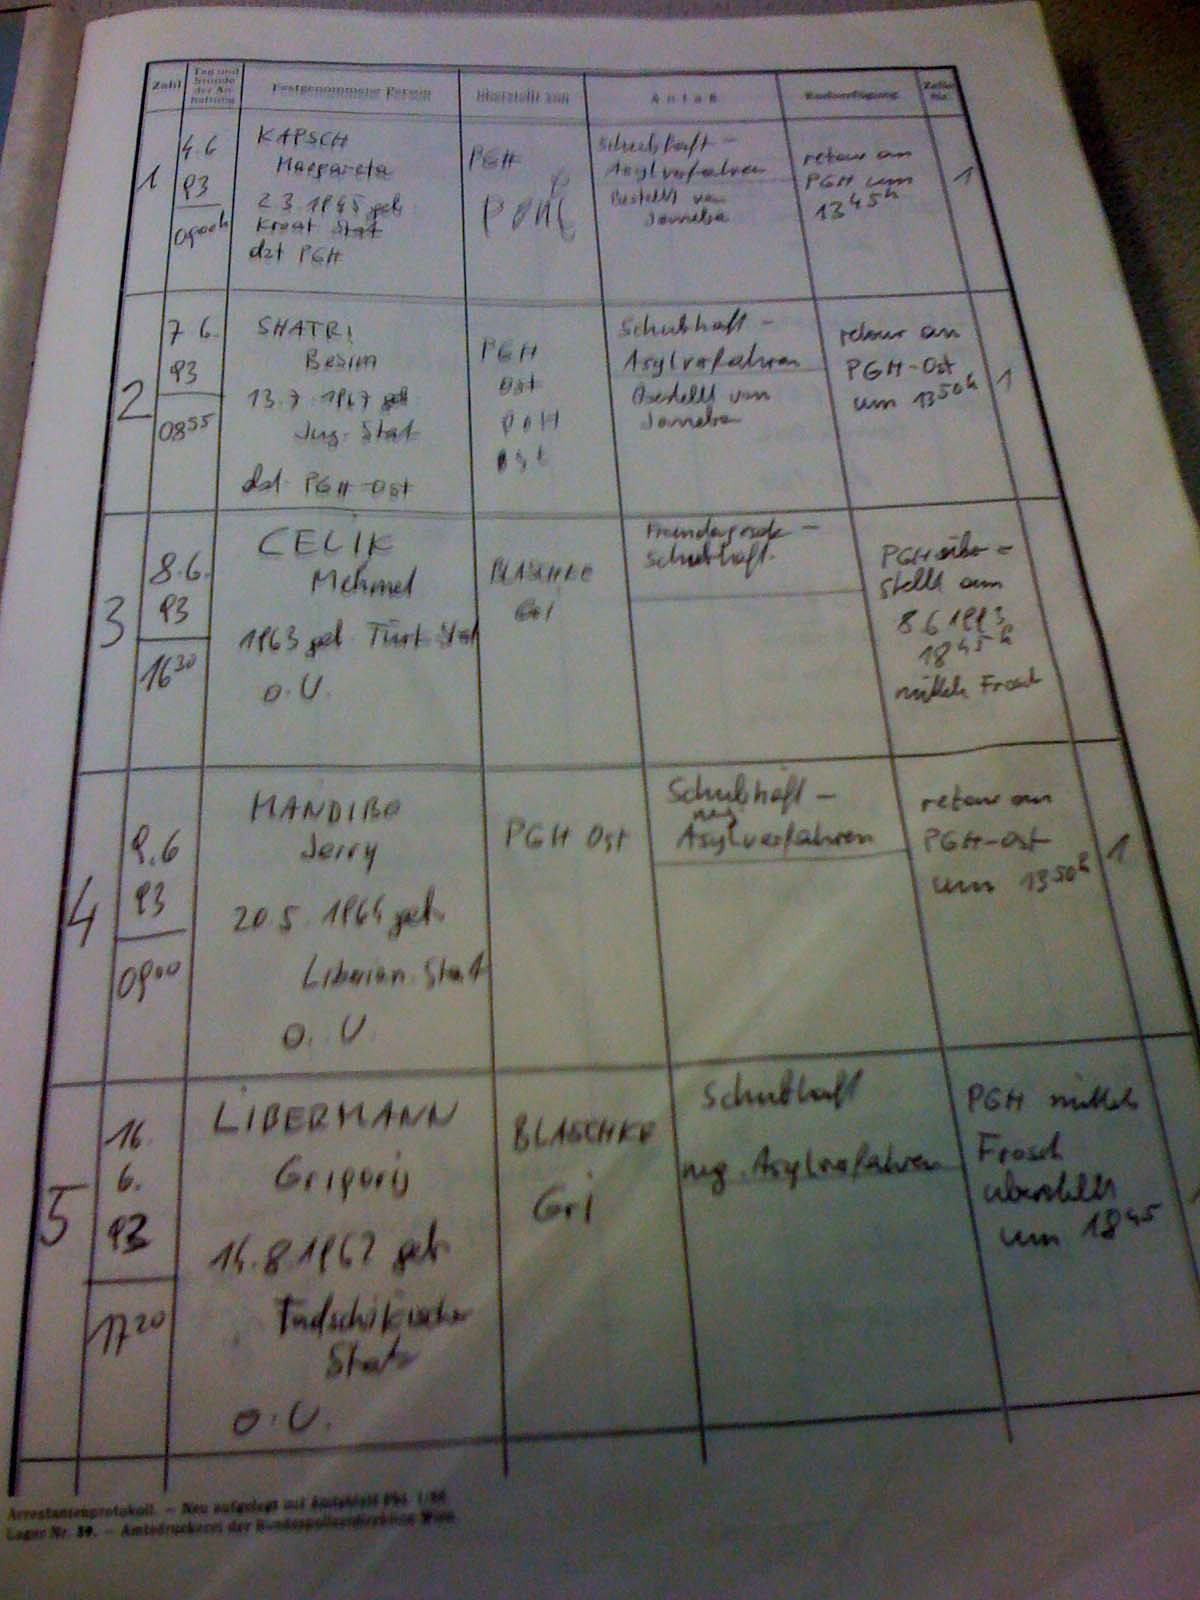 Zahl
Tag und
Stunde
der An-
haltung
Festgenommene Person
Überstellt von
Anlaß
Endverfügung
Zelle
Nr.
1
4.6
93
0900h
KAPSCH
Margareta
2 3. 1945 geb
Kroat Stat
dzt PGH
PGH
Schubhaft -
Asylverfahren
Bestellt von
retour an
PGH um
1345h
1
2
7 6.
93
0855
SHATRI
Besim
13.7.1967 geb
Jug. Stat
dzt PGH-Ost
PGH
Ost
PGH
Ost
Schubhaft -
Asylverfahren
Bestellt von
retour an
PGH-Ost
um 1350h
1
3
8.6.
93
1630
CELIK
Mehmet
1963 geb Türk Stat
O.U.
BLASCHKE
Gri
Schubhaft.
PGH über-
stellt am
8 6 1993
1845h
mittels Frosch
4
9.6
93
0900
MANDIBO
Jerry
20.5.1964 geb.
Liberian. Stat
O. U.
PGH Ost
Schubhaft -
neg
Asylverfahren
retour an
PGH-Ost
um 1350h
1
5
16.
6.
93
1720
LIBERMANN
Grigorij
14.8.1967 geb
Tadschikische
Stat
O.U.
BLASCHKE
Gri
Schubhaft
neg. Asylverfahren
PGH mittels
Frosch
überstellt
um 1845
Arrestantenprotokoll. – Neu aufgelegt mit Amtsblatt
Lager Nr. 39. – Amtsdruckerei der Bundespolizeidirektion Wien